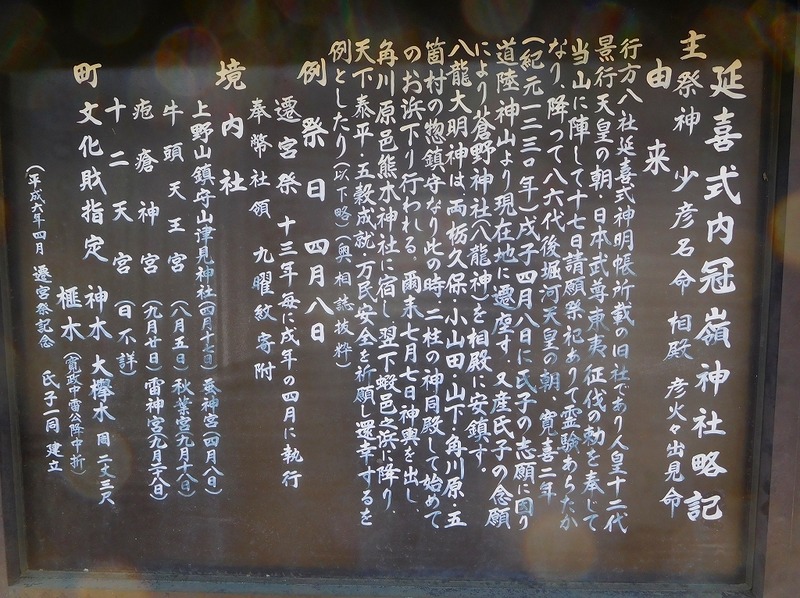 延喜式内冠嶺神社略記
主祭神 少彦名命 相殿 彦火々出見命
由来
行方八社延喜式神明帳所載の旧社であり人皇十二代
景行天皇の朝・日本武尊東夷征伐の勅を奉じて
当山に陣して十七日請願祭祀ありて霊験あらたか
なり、降って八六代後堀河天皇の朝、寛喜二年
(紀元一二三〇年)戊子四月八日に氏子の志願に因り
道陸神山より現在地に遷座す。又産氏子の念願
により蒼野神社(八龍神)を相殿に安鎮す。
八龍大明神は両栃久保・小山田・山下・角川原・五
箇村の惣鎮守なり此の時二柱の神同殿して始めて
のお浜下り行われる。爾来七月七日神輿を出し、
角川原邑熊木神社に宿し翌下蝦邑之浜に降り、
天下泰平・五穀成就・万民安全を祈願し還幸するを
例としたり(以下略)(奥相誌抜粋)
例祭日 四月八日
遷宮祭 十三年毎に戌年の四月に執行
奉幣社領 九曜紋寄附
境内社
上野山鎮守山津見神社(四月十七日)
養神宮(四月八日)
牛頭天王宮(八月五日)秋葉宮(九月十八日)
疱瘡神宮(九月廿日)雷神宮(九月二八日)
十二天宮(日不詳)
町文化財指定 神木 大欅木 周二丈三尺
榧木(寛政中雷公降中折)
(平成六年四月 遷宮祭記念 氏子一同 建立